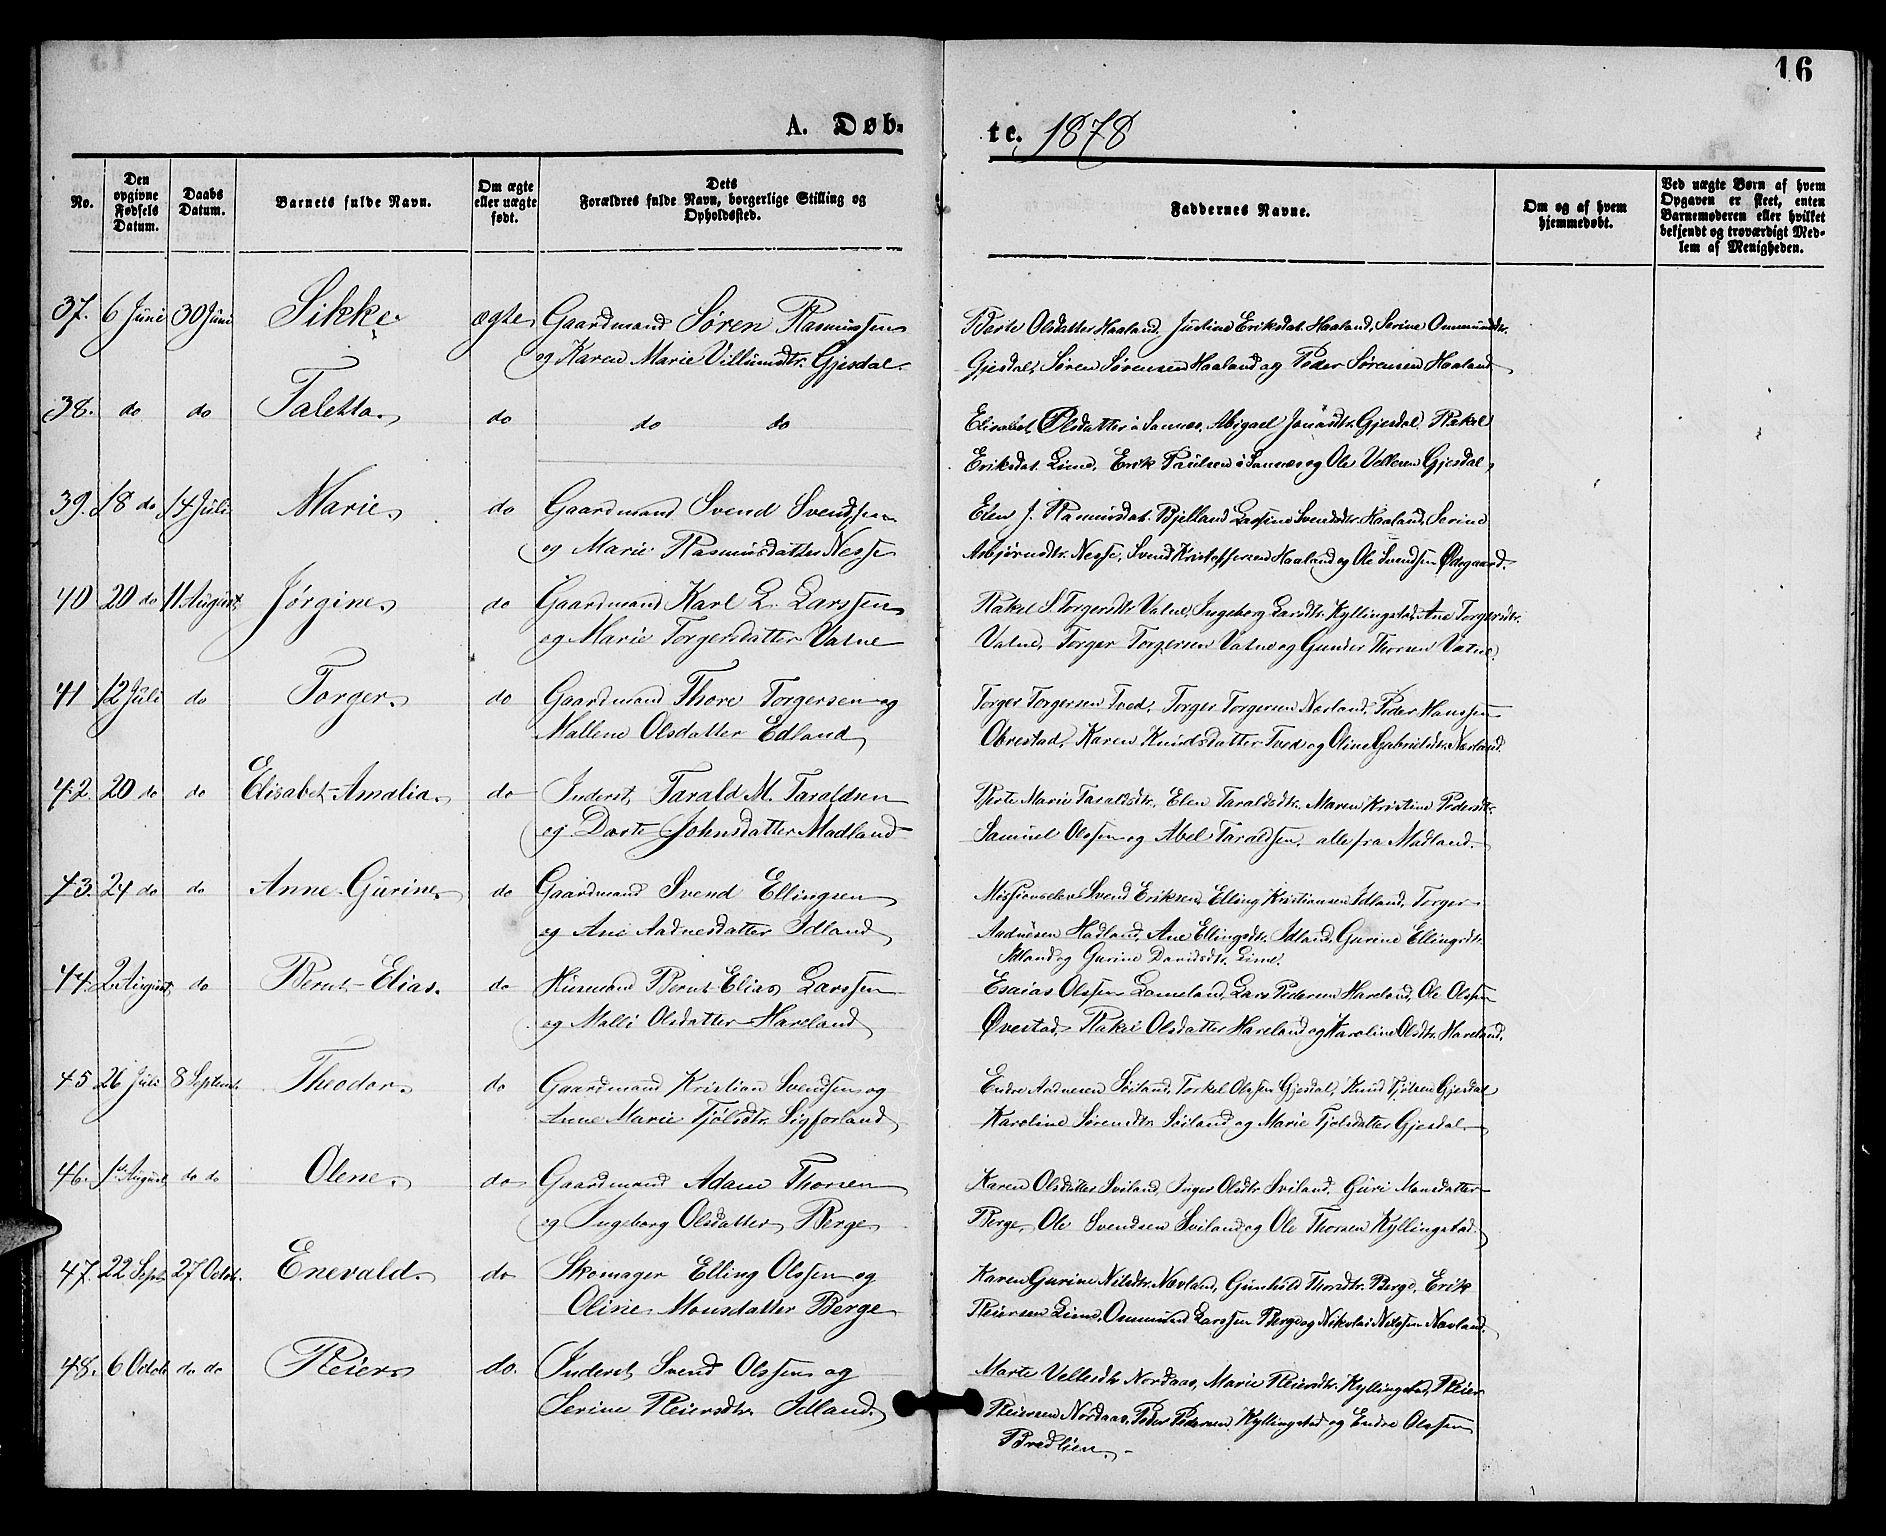 16
A. Døb-
te. 1878
No.
Den opgivne Fødsels Datum.
Daabs Datum.
Barnets fulde Navn.
Om ægte eller uægte født.
Dets Forældres fulde Navn, borgerlige Stilling og Opholdssted.
Faddernes Navne.
Om og af hvem hjemmedøbt.
Ved uægte Børn af hvem Opgaven er skeet, enten Barnemoderen eller hvilket bekjendt og troværdigt Medlem af Menigheden.
37. 6 Juni 30 Juni Sikke ægte Gaardmand Søren Rasmussen
og Karen Marie Villumdtr. Gjesdal.
Berte Olsdatter Haaland, Justine Eriksdat. Haaland, Serine Ommundsdtr.
Gjesdal, Søren Sørensen Haaland og Peder Sørensen Haaland
38. do do Taletta do do do
Elisabet Olsdatter i Sannes, Abigael Jonasdtr. Gjesdal, Rakel
Eriksdat. Lime, Erik Paulsen i Sannes og Ole Vellesen Gjesdal
39. 18 do 14 Juli Marie do Gaardmand Svend Svendsen
og Marie Rasmusdatter Nesse
Elen J. Rasmusdat. Bjelland, Larsine Svendsdtr. Haaland, Serine
Asbjørnsdtr. Nesse, Svend Kristoffersen Haaland og Ole Svendsen Øvregaard.
40 20 do 11 August Jørgine do Gaardmand Karl L. Larssen
og Marie Torgersdatter Vatne
Rakel S. Torgersdtr Vatne, Ingeborg Larsdtr. Kyllingstad, Ane Torgersdtr.
Vatne, Torger Torgersen Vatne og Gunder Thorsen Vatne.
41 12 Juli do Torger do Gaardmand Thore Torgersen og
Mallene Olsdatter Edland
Torger Torgersen Tved, Torger Torgersen Navland, Peder Hanssen
Obrestad, Karen Knudsdatter Tved og Oline Gabrielsdtr. Navland.
42. 20 do do Elisabet Amalia do Inderst Tarald M. Taraldsen
og Dorte Johnsdatter Madland
Berte Marie Taraldsdtr., Elen Taraldsdtr. Maren Kristine Pedersdtr.
Samuel Olssen og Abel Taraldsen, alle fra Madland.
43. 24 do do Anne Gurine do Gaardmand Svend Ellingsen
og Ane Aadnesdatter Idland
Missionselev Svend Eriksen, Elling Kristiansen Idland, Torger
Aadnesen Hadland, Ane Ellingsdtr. Idland, Gurine Ellingsdtr.
Idland og Gurine Davidsdtr. Lime.
44. 2 August do Bernt Elias. do Husmand Bernt Elias Larssen
og Malli Olsdatter Hareland
Esaias Olssen Lomeland, Lars Pedersen Hareland, Ole Olssen
Øvestad, Rakel Olsdatter Hareland og Karoline Olsdtr. Hareland.
45 26 Juli 8 Septemb. Theodor do Gaardmand Kristian Svendsen og
Anne Marie Tjølsdtr. Sigforland
Endre Aadnesen Soiland, Torkel Olssen Gjesdal, Knud Tjølsen Gjesdal
Karoline Sørensdtr. Soiland og Marie Tjølsdatter Gjesdal
46. 1ste August do do Olene do Gaardmand Adam Thorsen
og Ingeborg Olsdatter Berge
Karen Olsdatter Sviland, Inger Olsdtr. Sviland, Guri Monsdatter
Berge, Ole Svendsen Sviland og Ole Thorsen Kyllingstad.
47. 22 Sept 27 Octob. Enevald do Skomager Elling Olssen og
Oline Monsdatter Berge
Karen Gurine Nilsdtr. Navland, Gunhild Thorsdtr. Berge, Erik
Reiersen Lime, Ommund Larssen Berge og Nikolai Nilssen Navland.
48. 6 Octob do do Reier do. Inderst Svend Olssen og
Serine Reiersdtr. Idland
Marte Vellesdtr Nordaas, Marie Reiersdtr. Kyllingstad, Reier
Reiersen Nordaas, Peder Pedersen Kyllingstad og Endre Olssen
Bredlien.